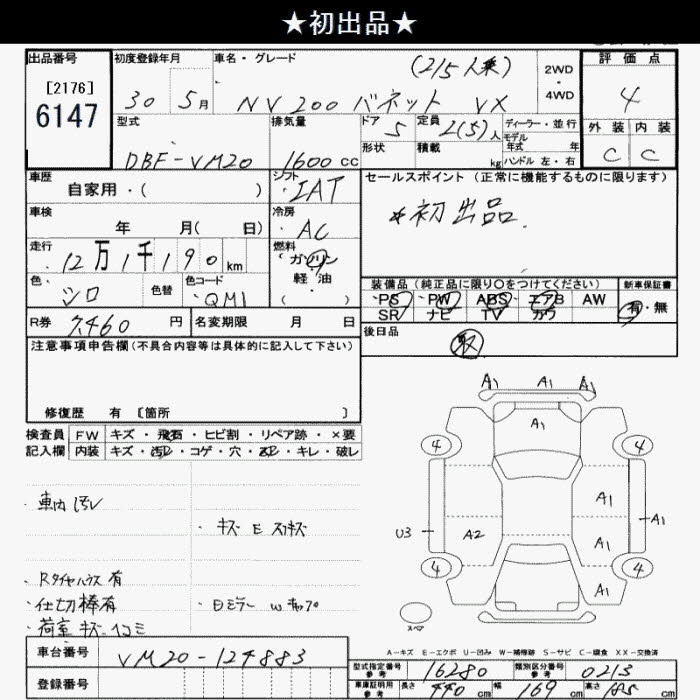 ★初出品★
出品番号
[2176]
6147
初度登録年月
30 5月
車名・グレード
(2/5人乗)
NV200 バネット VX
2WD
・
4WD
評価点
4
外装 内装
C C
型式
DBF-VM20
排気量
1600cc
ドア
5
定員
2(5)人
ディーラー・並行
モデル
年式 年
形状
積載
kg
ハンドル 左・右
車歴
自家用・( )
シフト
IAT
セールスポイント(正常に機能するものに限ります)
*初出品.
車検
年 月( 日)
冷房
AC
走行
12万1千190km
燃料
ガソリン
軽油
色・
シロ
色替
色コード
QM1
装備品(純正品に限り○をつけてください)
PS PW ABS エアB AW
SR ナビ TV カワ
新車保証書
有・無
R券 7,460 円
名変期限 月 日
後日品
取
注意事項申告欄(不具合内容等は具体的に記入して下さい)
修復歴 有 [箇所 ]
検査員
記入欄
FW キズ・飛石・ヒビ割・リペア跡・×要
内装 キズ・汚レ・コゲ・穴・・キレ・破レ
・車内汚レ
・キズ E スリキズ
・Rタイヤハウス有
・仕切棒有
・荷室キズ・ヘコミ
A1 A1 A1
A1
4 4
A1
U3 A2 A1
A1
4 4
A1
スペア
A-キズ E-エクボ U-凹み W-補修跡 S-サビ C-腐食 XX-交換済
車台番号
VM20-124883
登録番号
型式指定番号
参考
16280
類別区分番号
参考
0213
車庫証明用
参考
長さ 440cm 幅 169cm 高さ cm